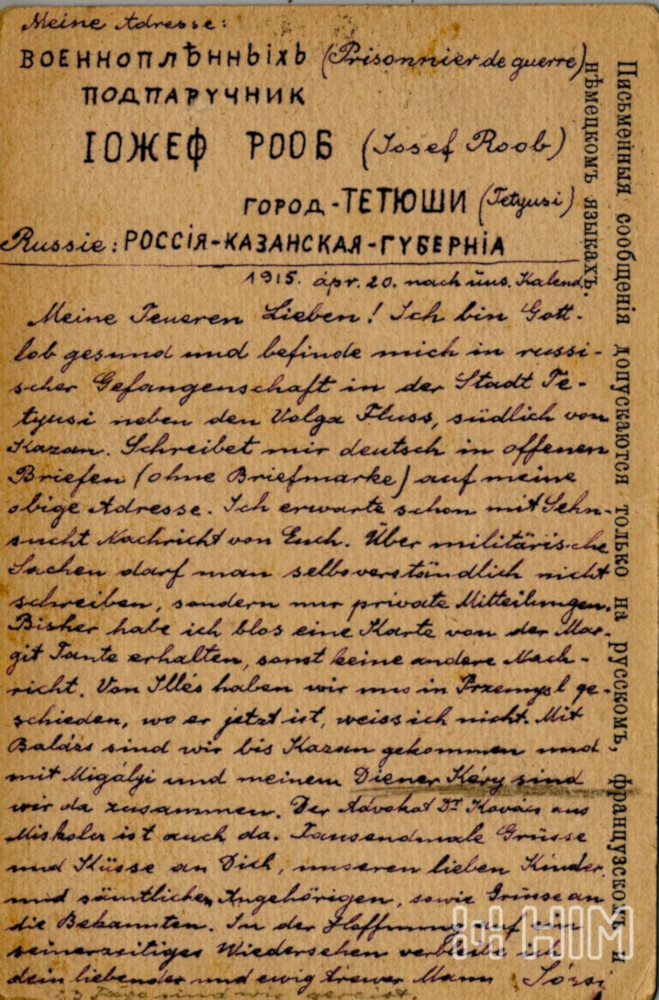 Meine Adresse:
ВОЕННОПЛѢННЫХЪ (Prisonnier de guerre)
ПОДПАРУЧНИК
ІОЖЕФ РООБ (Josef Roob)
ГОРОД-ТЕТЮШИ (Tetyusi)
Russie: РОССІЯ-КАЗАНСКАЯ-ГУБЕРНІА
1915. ápr. 20. nach üns. Kalend.
Meine Teueren Lieben! Ich bin Gott-
lob gesund und befinde mich in russi-
scher Gefangenschaft in der Stadt Te-
tyusi neben den Volga Fluss, südlich von
Kazan. Schreibet mir deutsch in offenen
Briefen (ohne Briefmarke) auf meine
obige Adresse. Ich erwarte schon mit Sehn-
sucht Nachricht von Euch. Über militärische
Sachen darf man selbsverständlich nicht
schreiben, sondern nur private Mitteilungen.
Bisher habe ich blos eine Karte von der Mar-
git Tante erhalten, sonst keine andere Nach-
richt. Von Illés haben wir uns in Przemysl ge-
schieden, wo er jetzt ist, weiss ich nicht. Mit
Balázs sind wir bis Kazan gekommen und
mit Migályi und meinem Diener Kéry sind
wir da zusammen. Der Advokat Dr Kovács aus
Miskolcz ist auch da. Tausendmale Grüsse
und Küsse an Dich, unseren lieben Kinder
und sämtlichen Angehörigen, sowie Grüsse an
die Bekannten. In der Hoffnung auf ein
seinerzeitiges Wiedersehen verbleibe ich
dein liebender und ewig treuer Mann Józsi
23 Tage sind wir gereist.
Письменныя сообщенія допускаются только на русскомъ, французскомъ и
нѣмецкомъ языкахъ.
HIM